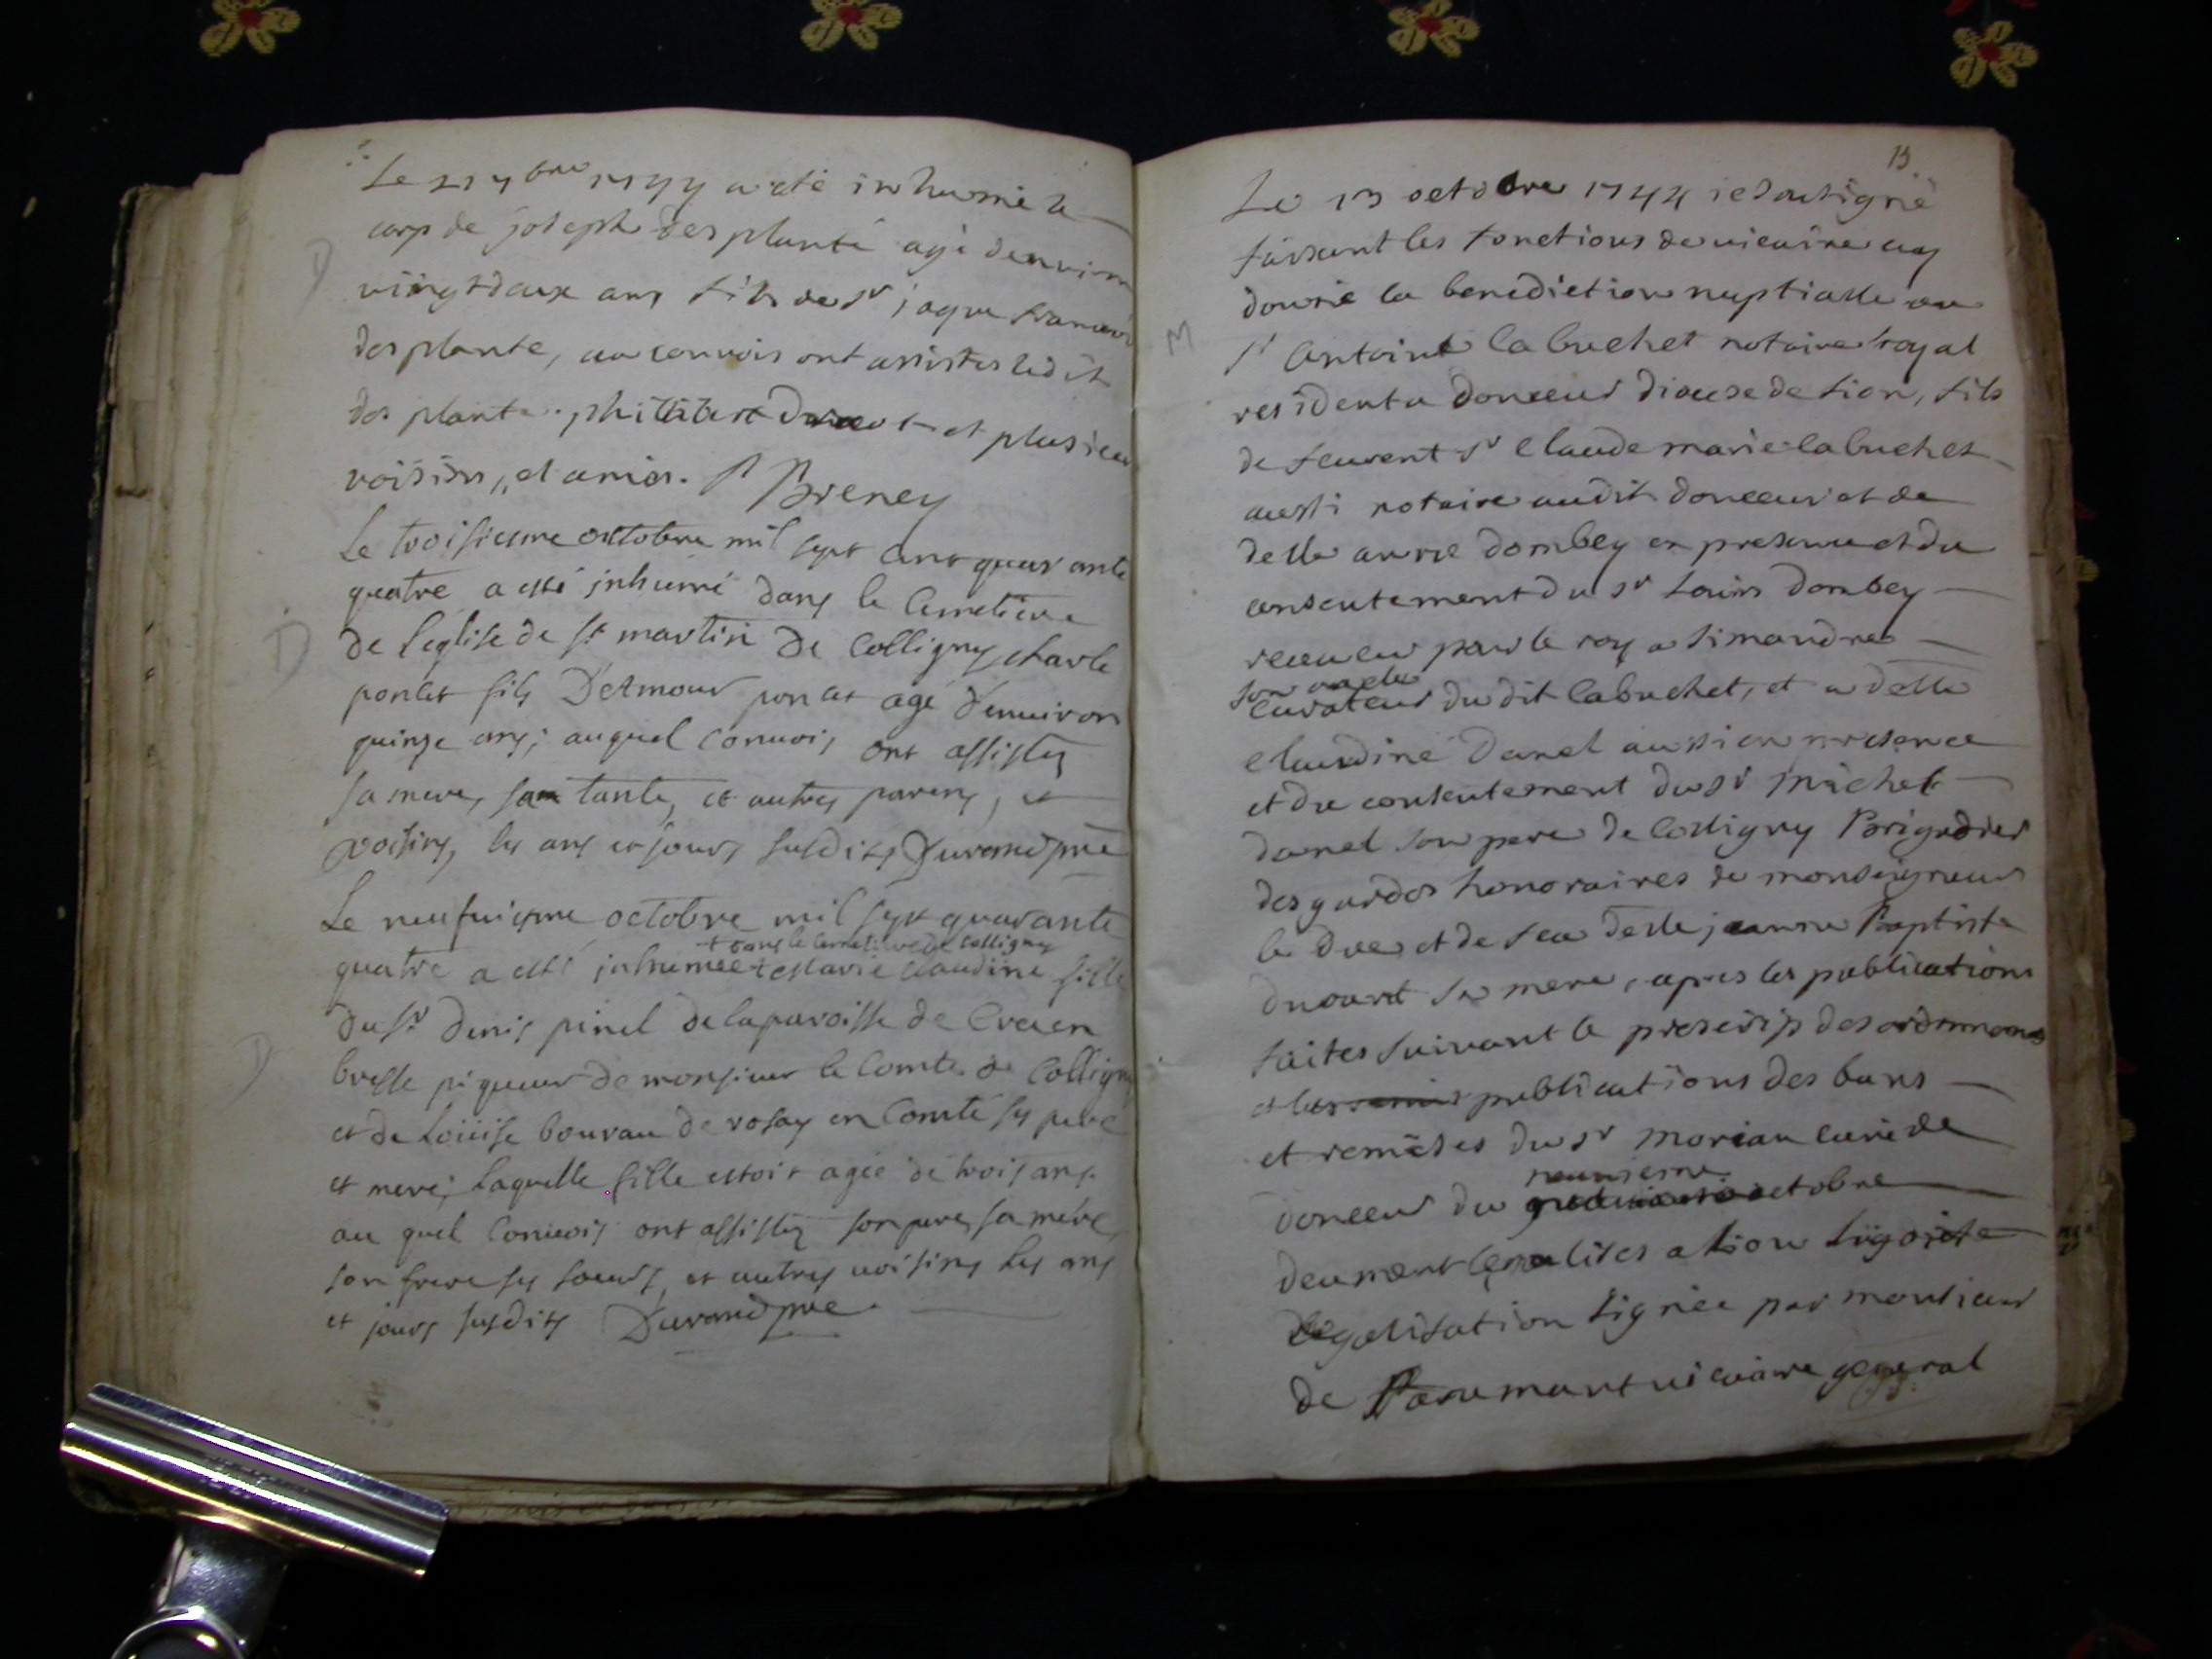 Le 21 7bre 1744 a été inhumé le
corp de joseph des plante agé denviron
vingt deux ans fils de Sr jaque francois
des plante, au convois ont assistes ledit
des plante. philibert et plusieurs
voisins, et amis. P Breney
Le troisiesme octobre mil sept cent quarante
quatre a esté inhumé dans le cemetiere
de l'eglise de St martin de Colligny charle
poncet fils poncet agé d'environ
quinze ans; auquel convois ont assistez
sa mere, sa tante, et autres parens, et
voisins, les ans et jours susdits Durand pre
Le neufviesme octobre mil sept quarante
+ dans le cemetiere de Colligny
quatre a esté inhumée + marie claudine fille
du Sr denis pinel de la paroisse de
bresse piqueur de monsieur le Comte de Colligny
et de Loüise bouvau de rosay en Comté ses pere
et mere; laquelle fille estoit agée de trois ans.
au quel convois ont assistez son pere, sa mere
son frere ses soeurs, et autres voisins les ans
et jours susdits Durand pre
13.
Le 13 octobre 1744 je soutsigné
faisant les fonctions de vicaire ay
donné la benediction nuptialle au
M
Sr Antoine labuchet notaire royal
resident a donceur diocese de lion, fils
de Sr claude marie labuchet
aussi notaire audit donceur et de
delle anne dombey en presence et du
consentement du Sr louis dombey
receveur pour le roy a simandre
son oncle
curateur du dit labuchet, et a delle
claudine danel aussi en presence
et du consentement du Sr michel
danel son pere de Colligny Brigadier
des gardes honoraires de monseigneur
le duc et de feu delle jeanne Baptiste
sa mere, apres les publications
faites suivant le prescrip des ordonnances
et les publications des bans
et remises du Sr morian curé de
neuvieme
donceur du octobre
deument legalisés a lion
legalisation signée par monsieur
de vicaire general